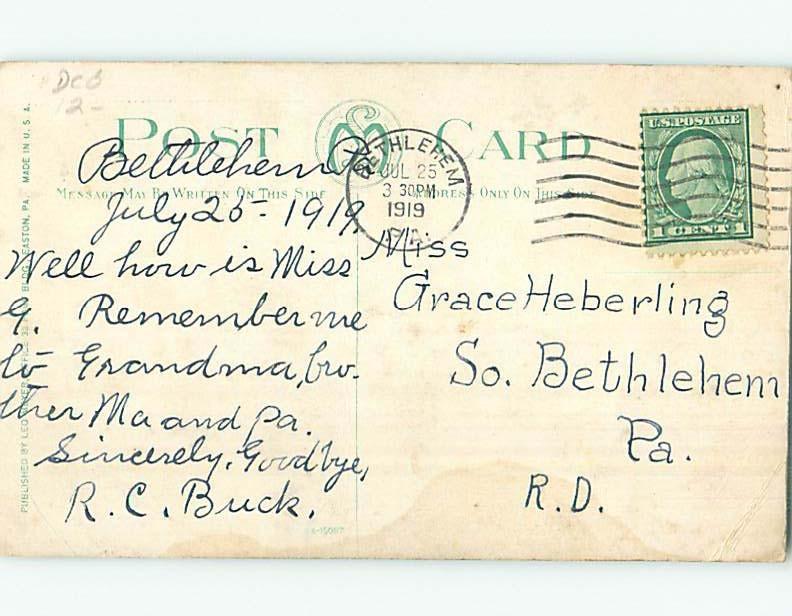 Dc6
12-
POST CARD
MESSAGE MAY BE WRITTEN ON THIS SIDE
ADDRESS ONLY ON THIS SIDE
BETHLEHEM
JUL 25
3 30PM
1919
PA.
U.S. POSTAGE
1 CENT 1
Bethlehem
July 25 - 1919
Well how is Miss
G. Remember me
to Grandma, bro-
ther Ma and Pa.
Sincerely, Goodbye,
R. C. Buck.
Miss
Grace Heberling
So. Bethlehem
Pa.
R.D.
PUBLISHED BY LEO BLDG. EASTON, PA. MADE IN U. S. A.